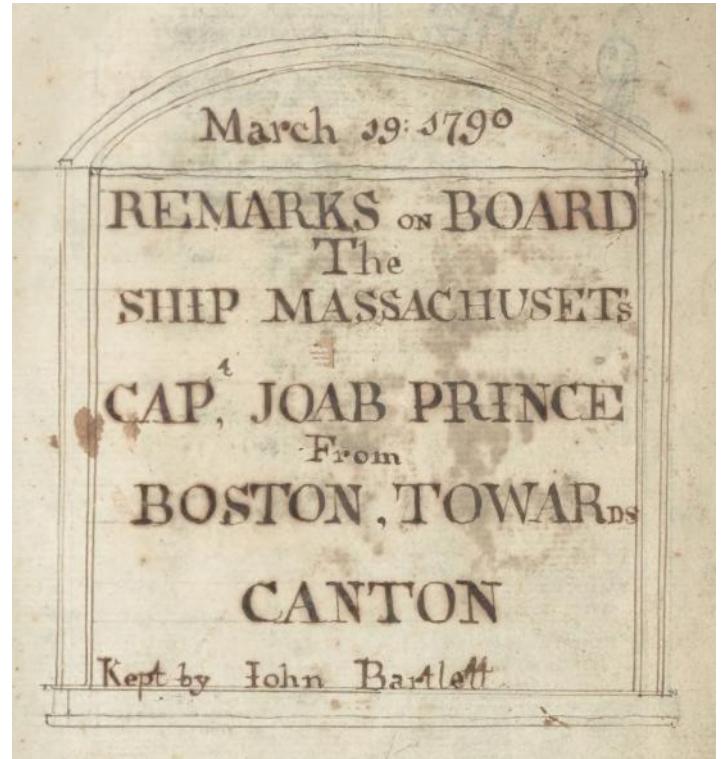 March 19: 1790
REMARKS ON BOARD
The
SHIP MASSACHUSET's
CAPt, JOAB PRINCE
From
BOSTON, TOWARDS
CANTON
Kept by John Bartlett